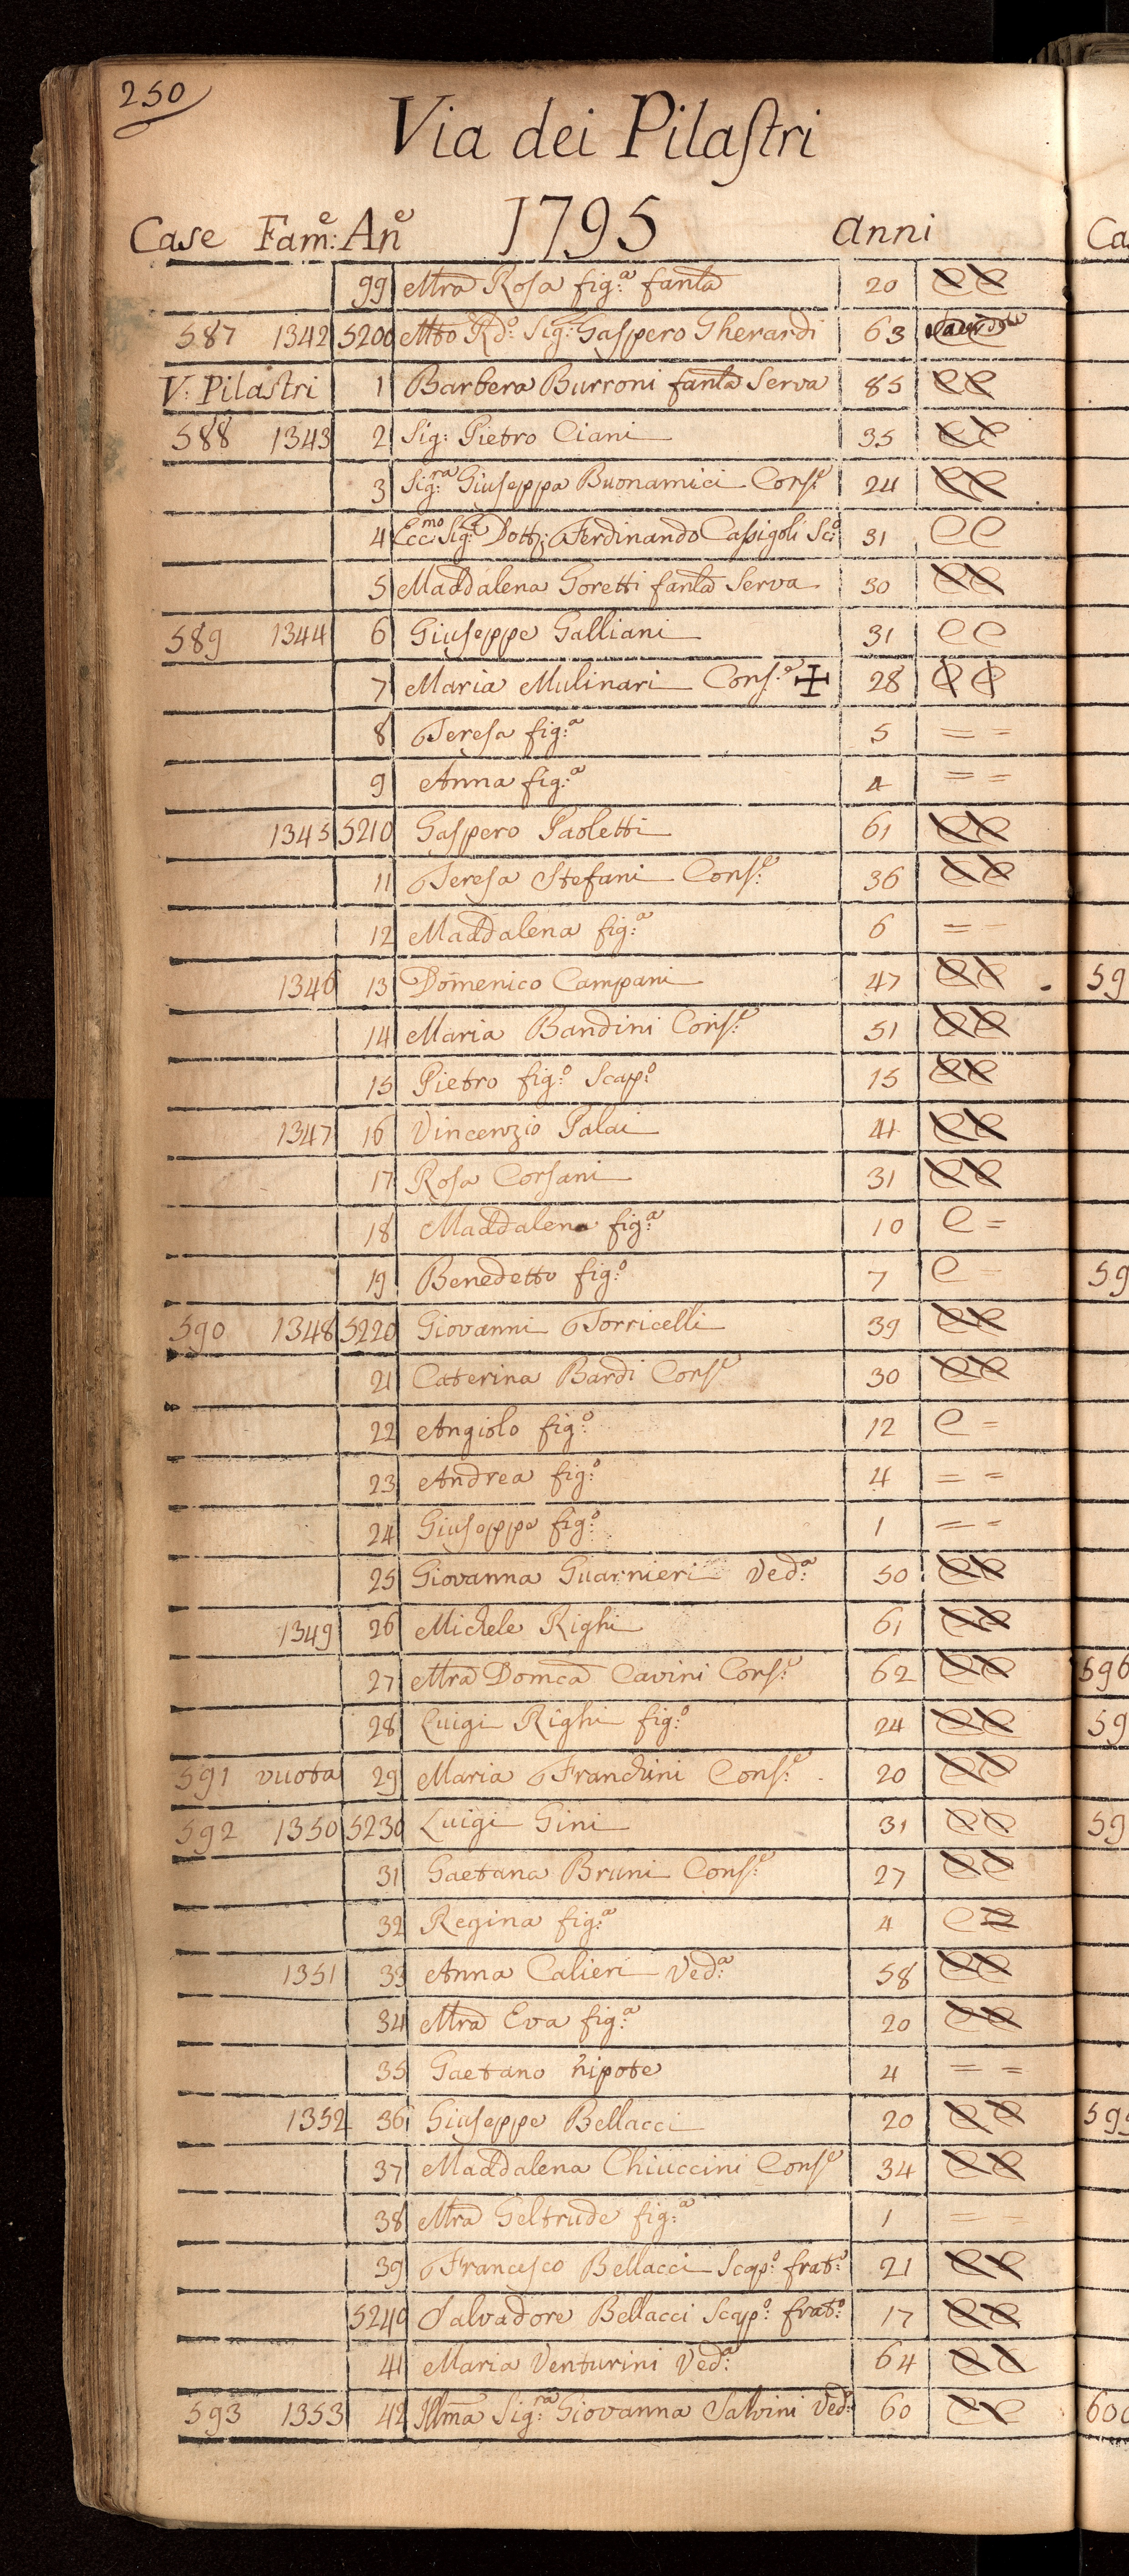 250
Via dei Pilaſtri
Case Fam:e An.e 1795 Anni
99 Mrã Roſa fig:a fanla 20 C C
587 1342 5200 Mto Rd:o Sig: Gaſpero Gherardi 63
V: Pilaſtri 1 Barbera Burroni fanla Serva 85 C C
588 1343 2 Sig: Pietro Ciani 35 C C
3 Sig:ra Giuſeppa Buonamici Conſ:e 24 C C
4 Ecc:mo Sig:e Dott: Ferdinando Caſsigoli Sc:o 31 C C
5 Maddalena Goretti fanla Serva 30 C C
589 1344 6 Giuſeppe Galliani 31 C C
7 Maria Mulinari Conſ:e ✠ 28 C C
8 Tereſa fig:a 5 = =
9 Anna fig:a 4 = =
1345 5210 Gaſpero Paoletti 61 C C
11 Tereſa Stefani Conſ:e 36 C C
12 Maddalena fig:a 6 = =
1346 13 Domenico Campani 47 C C
14 Maria Bandini Conſ:e 51 C C
15 Pietro fig:o Scap:o 15 C C
1347 16 Vincenzio Palai 41 C C
17 Roſa Corſani 31 C C
18 Maddalena fig:a 10 C =
19 Benedetto fig:o 7 C =
590 1348 5220 Giovanni Torricelli 39 C C
21 Caterina Bardi Conſ:e 30 C C
22 Angiolo fig:o 12 C =
23 Andrea fig:o 4 = =
24 Giuſeppe fig:o 1 = =
25 Giovanna Guarnieri Ved:a 50 C C
1349 26 Michele Righi 61 C C
27 Mrã Domca Cavini Conſ:e 62 C C
28 Luigi Righi fig:o 24 C C
591 vuota 29 Maria Franchini Conſ:e 20 C C
592 1350 5230 Luigi Gini 31 C C
31 Gaetana Bruni Conſ:e 27 C C
32 Regina fig:a 4 C =
1351 33 Anna Calieri Ved:a 58 C C
34 Mrã Eva fig:a 20 C C
35 Gaetano nipote 4 = =
1352 36 Giuſeppe Bellacci 20 C C
37 Maddalena Chiuccini Conſ:e 34 C C
38 Mrã Geltrude fig:a 1 = =
39 Franceſco Bellacci Scap:o frat:o 21 C C
5240 Salvadore Bellacci Scap:o frat:o 17 C C
41 Maria Venturini Ved:a 64 C C
593 1353 42 Illma Sig:ra Giovanna Salvini Ved:a 60 C C